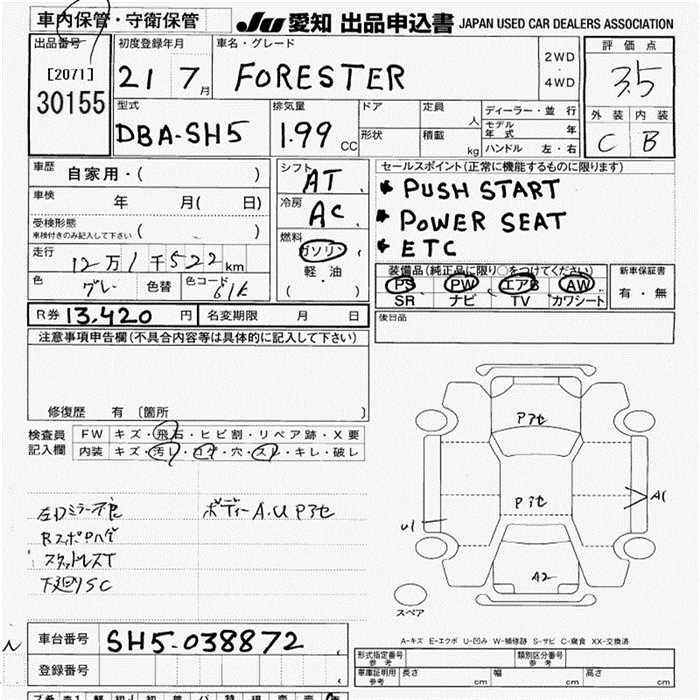 車内保管・守衛保管
JU 愛知 出品申込書 JAPAN USED CAR DEALERS ASSOCIATION
出品番号
[2071]
30155
初度登録年月
21 7月
車名・グレード
FORESTER
2WD
・
4WD
評価点
3.5
外装 内装
C B
型式
DBA-SH5
排気量
1.99 CC
ドア
形状
定員 人
積載 kg
ディーラー・並行
モデル年式 年
ハンドル 左・右
車歴
自家用・( )
車検
年 月( 日)
受検形態
車検付きのみ記入して下さい ( )
走行
12万1千522km
色
グレー
色替
色コード
61K
シフト
AT
冷房
AC
燃料
ガソリン
軽・油
( )
セールスポイント(正常に機能するものに限ります)
* PUSH START
* POWER SEAT
* ETC
装備品(純正品に限り〇をつけてください)
PS PW エアB AW
SR ナビ TV カワシート
新車保証書
有・無
R券 13,420 円
名変期限 月 日
後日品
注意事項申告欄(不具合内容等は具体的に記入して下さい)
修復歴 有〔箇所 〕
検査員
記入欄
FW キズ・飛石・ヒビ割・リペア跡・X要
内装 キズ・汚レ・コゲ・穴・スレ・キレ・破レ
左ロミラー不良
ボディーA.U Pアセ
RスポPハゲ
スタットレスT
下廻りSC
Pアセ
Pアセ
A1
U1
A2
スペア
A-キズ E-エクボ U-凹み W-補修跡 S-サビ C-腐食 XX-交換済
車台番号
SH5-038872
登録番号
形式指定番号
参考
類別区分番号
参考
車庫証明用
参考
長さ cm
幅 cm
高さ cm